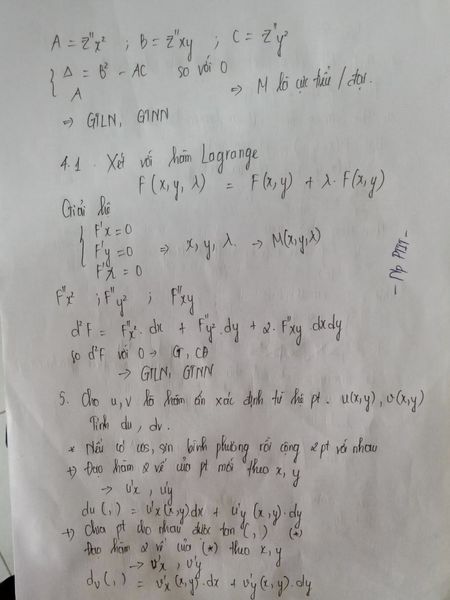 A = Z''x² ; B = Z''xy ; C = Z''y²
{ Δ = B² - AC so với 0
A ⇒ M là cực tiểu / đại.
⇒ GTLN, GTNN
4.1. Xét với hàm Lagrange
F(x,y,λ) = F(x,y) + λ.F(x,y)
Giải hệ
{ F'x = 0
F'y = 0 ⇒ x, y, λ → M(x,y,λ)
F'λ = 0
F''x² ; F''y² ; F''xy
d²F = F''x². dx + F''y². dy + 2. F''xy dxdy
so d²F với 0 → CT, CĐ
→ GTLN, GTNN
5. Cho u, v là hàm ẩn xác định từ hệ pt. u(x,y), v(x,y)
Tính du, dv.
* Nếu có cos, sin bình phương rồi cộng 2 pt với nhau
+) Đạo hàm 2 vế của pt mới theo x, y
→ u'x , u'y
du(,) = u'x(x,y)dx + u'y(x,y).dy
+) Chia pt cho nhau được tan(,) (*)
Đạo hàm 2 vế của (*) theo x, y
→ v'x , v'y
dv(,) = v'x(x,y).dx + v'y(x,y).dy